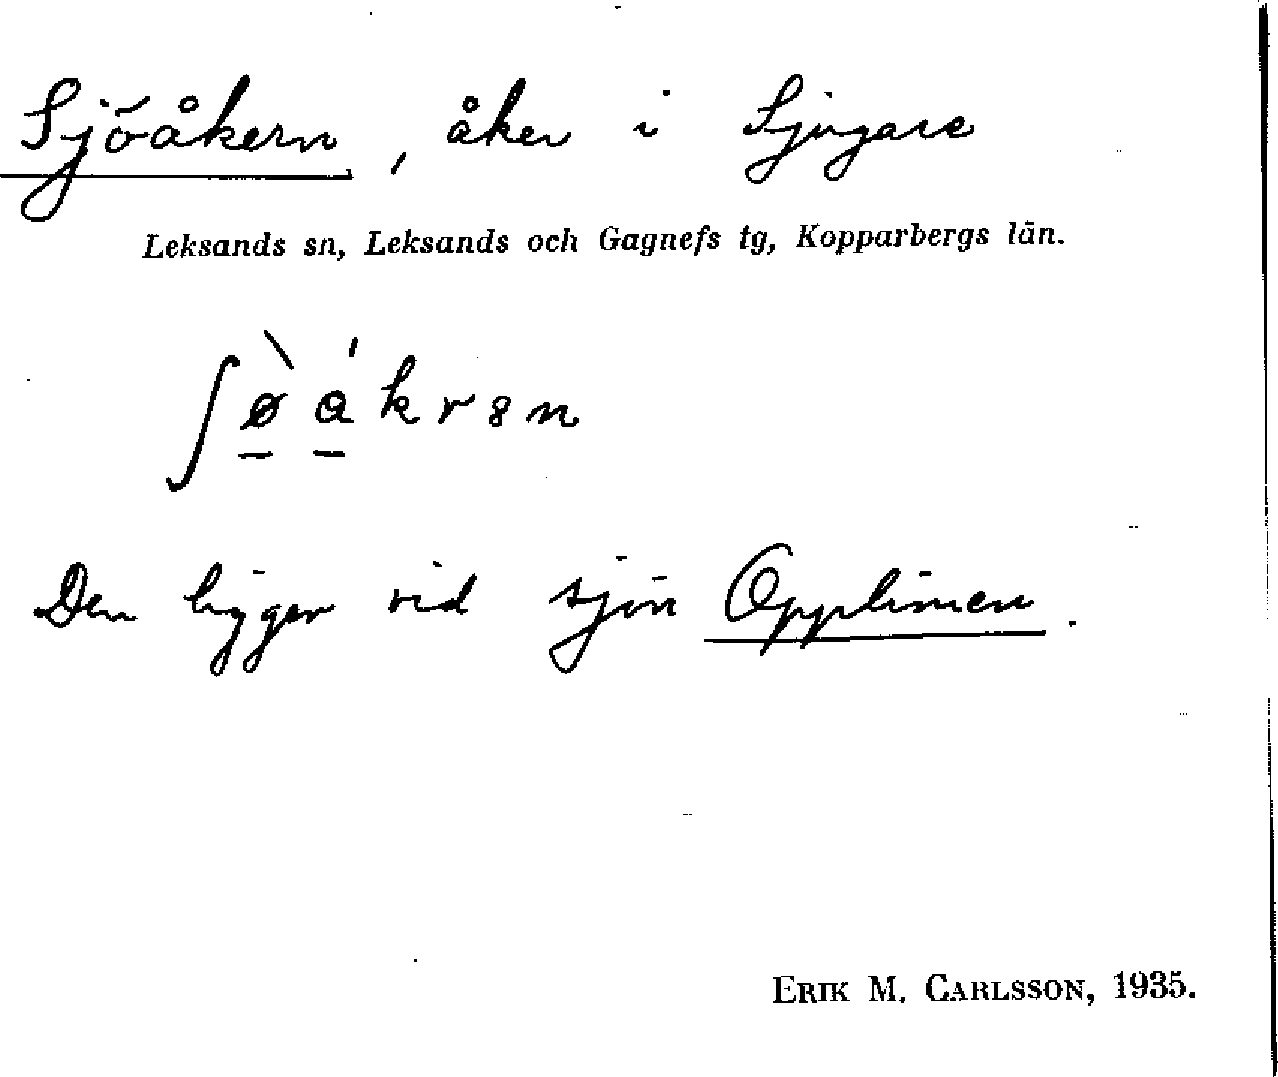 Sjöåkern, åker i Sjugare
Leksands sn, Leksands och Gagnefs tg, Kopparbergs län.
ʃø̠̀á̠krən
Den ligger vid sjön Opplimen.
ERIK M. CARLSSON, 1935.